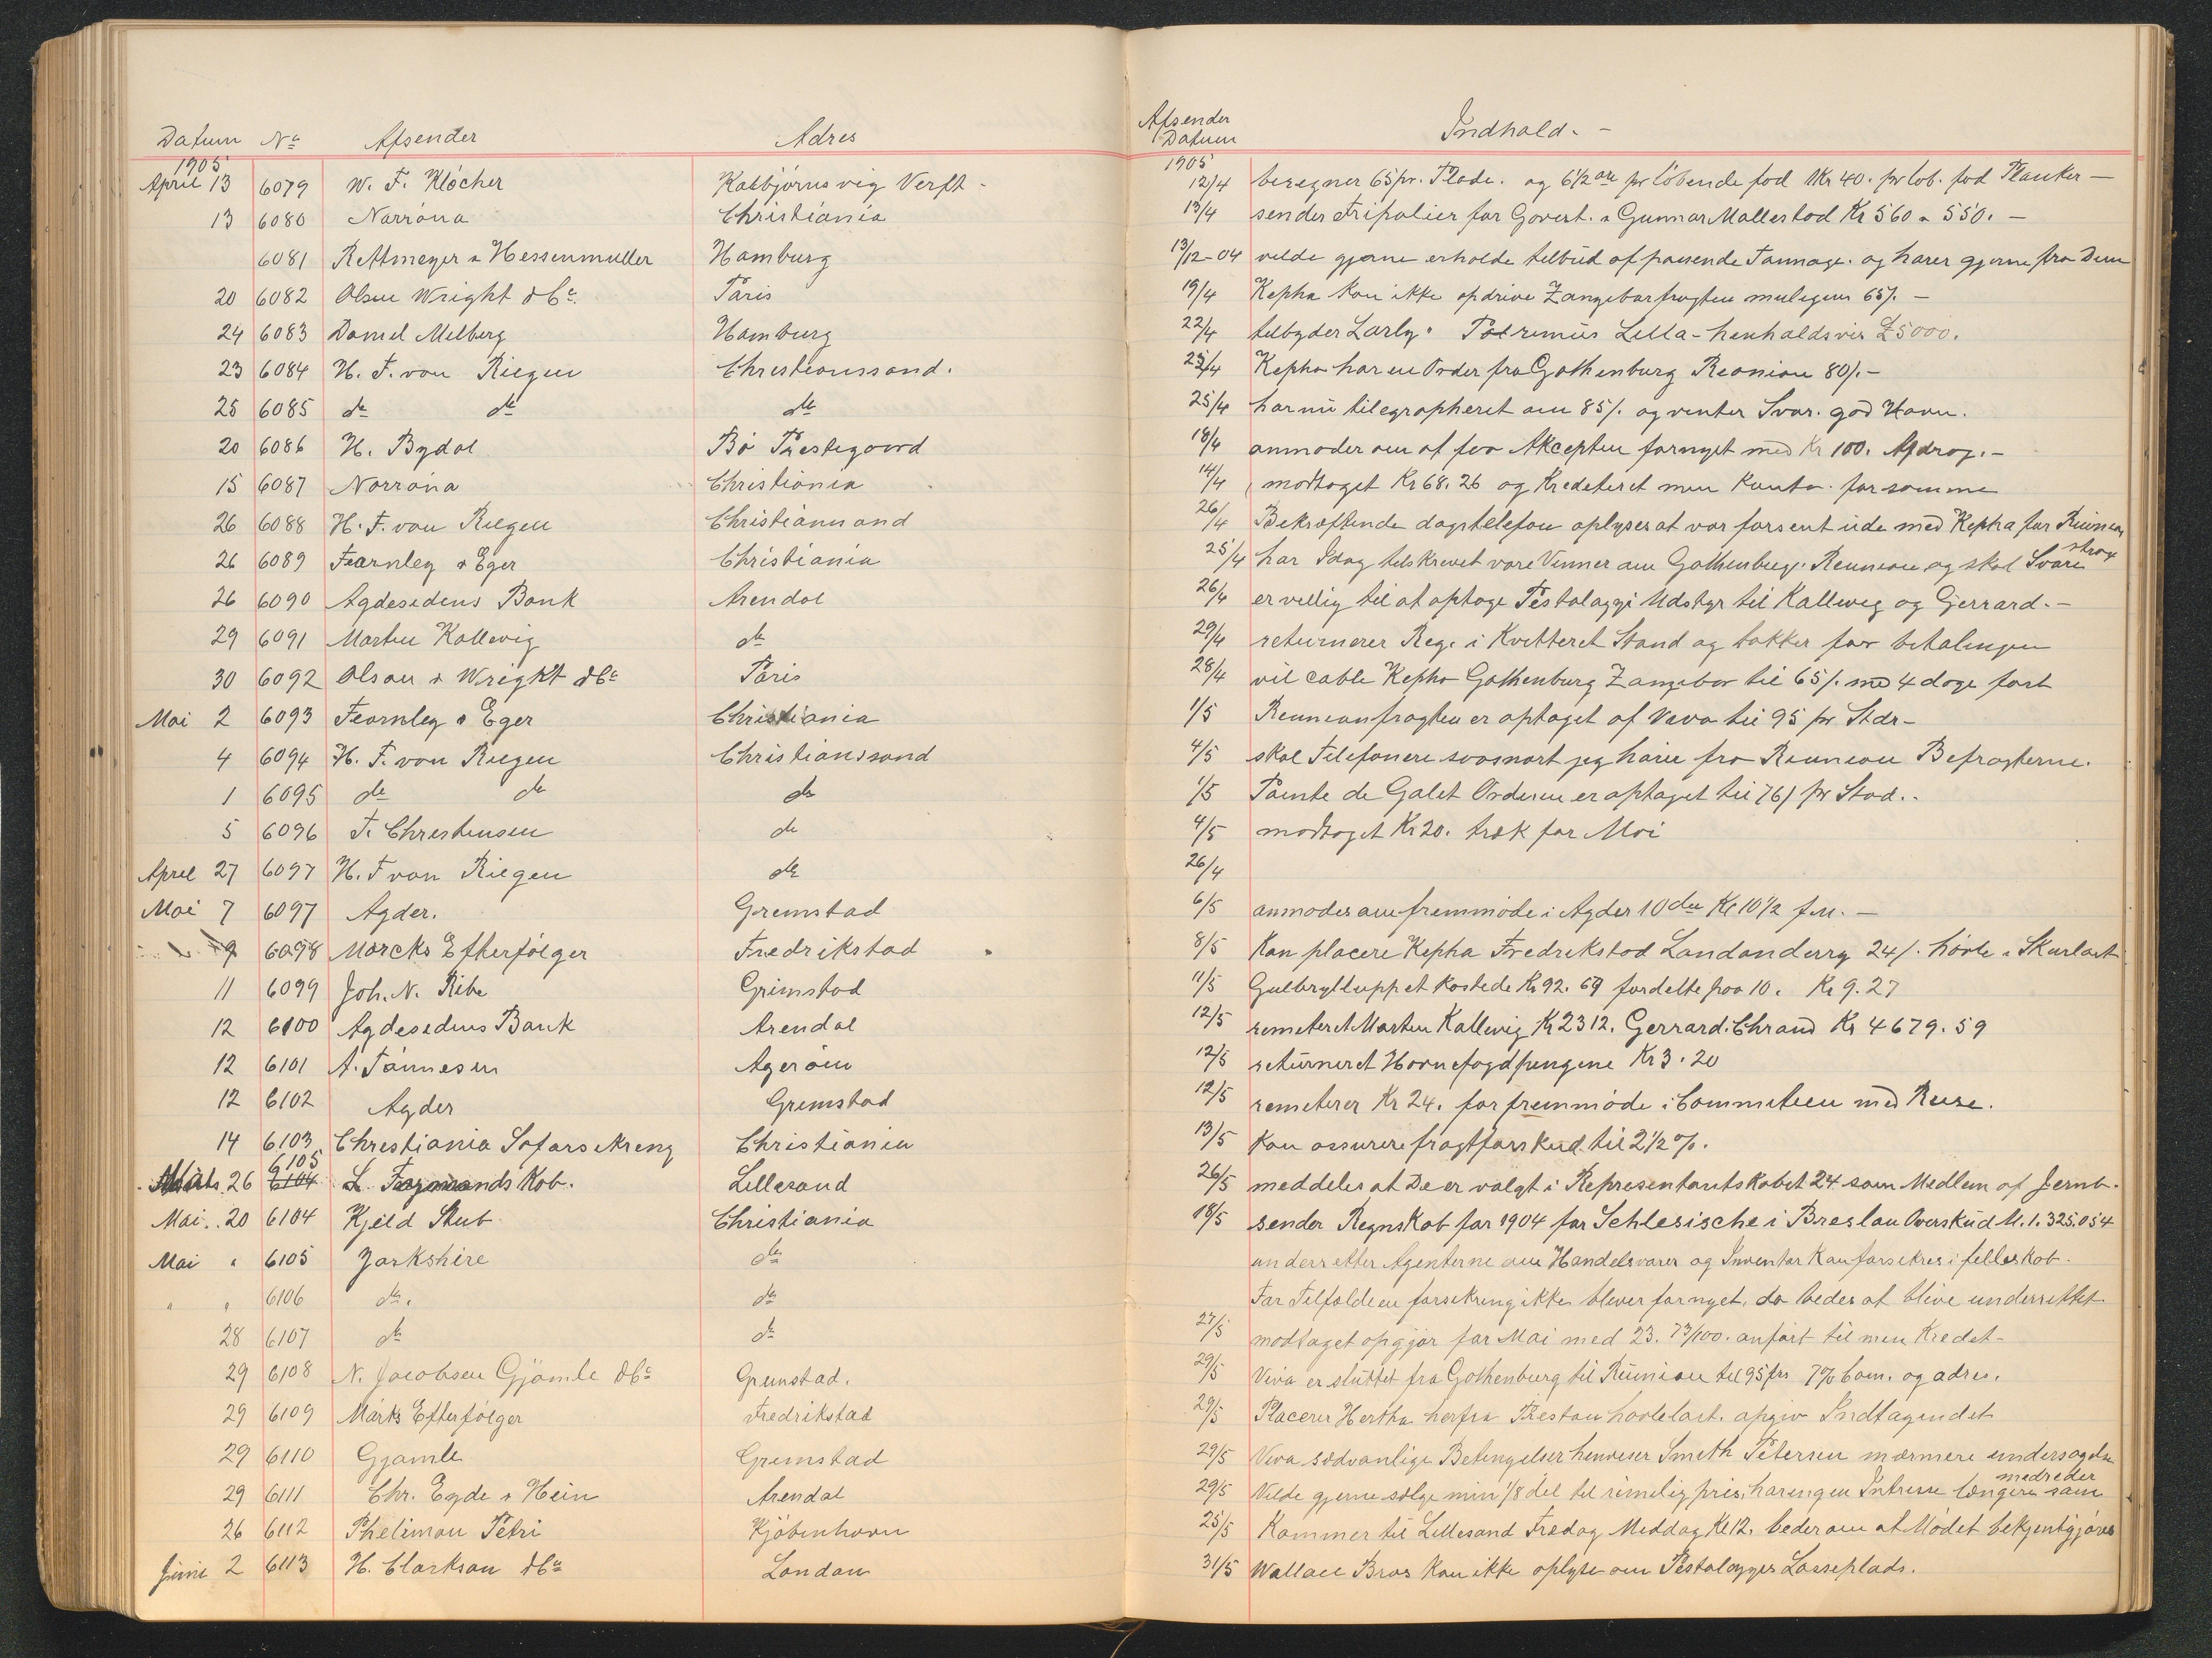 Datum No Afsender Adres Afsender Datum Indhold. -
1905 1905
April 13 6079 W. F. Klöcher Kalbjörnsvig Verft - 12/4 beregner 65 pr. Plade. og 6 1/2 øre pr löbende fod 1 Kr 40. pr löb. fod Planker -
13 6080 Norröna Christiania 13/4 sender Fripolicer for Govert. & Gunnar Mollestad Kr 560 & 550. -
6081 Rettmeyer & Hessenmuller Hamburg 13/12-04 vilde gjerne erholde tilbud af passende Tonnage. og hører gjerne fra Dem
20 6082 Olsen Wright & Co. Paris 19/4 Kepha kan ikke opdrive Zangebarfragten muligens 65/. -
24 6083 Daniel Melberg Hamburg 22/4 tilbyder Larly. Lilla - henholdsvis £5000.
23 6084 H. F. von Riegen Christianssand. 23/4 Kepha har en Order fra Gothenburg Reonion 80/. -
25 6085 do do do 25/4 har nu tilegrapheret om 85/. og venter Svar. god Havn.
20 6086 H. Bydal Bö Prestegaard 18/4 anmoder om at faa Akcepten fornyet med Kr 100. Afdrag. -
15 6087 Norröna Christiania 14/4 modtaget Kr 68.26 og Krediteret min Konto for samme
26 6088 H. F. von Riegen Christianssand 26/4 Bekræftende dagstelefon oplyses at var forsent ude med Kepha for Reunion
26 6089 Fearnley & Eger Christiania 25/4 har Idag tilskrevet vore Venner om Gothenburg. Reunion og skal Svare strax
26 6090 Agdesidens Bank Arendal 26/4 er villig til at optage Pestalozzi Udstyr til Kallevig og Gerrard. -
29 6091 Morten Kallevig do 29/4 returnerer Reg. i Kvitteret Stand og takker for betalingen
30 6092 Olsen & Wright & Co Paris 28/4 vil cable Kepha Gothenburg Zangebar til 65/. med 4 dage fast
Mai 2 6093 Fearnley & Eger Christiania 1/5 Reunionfragten er optaget af Vava til 95 pr Stdr -
4 6094 H. F. von Riegen Christianssand 4/5 skal Telefonere saasnart jeg hörer fra Reunion Befragterne.
1 6095 do do do 1/5 Pointe de Galet Orderen er optaget til 76/ pr Stad..
5 6096 T. Christensen do 4/5 modtaget Kr 20. træk for Mai
April 27 6097 H. F von Riegen do 26/4
Mai 7 6097 Agder. Grimstad 6/5 anmodes om fremmöde i Agder 10de Kl 10 1/2 f.m. -
9 6098 Mørcks Efterfölger Fredrikstad 8/5 Kan placere Kepha Fredrikstad Londonderry 24/. hövle & Skurlast
11 6099 Joh. N. Ribe Grimstad 11/5 Gulbrylluppet kostede Kr 92.69 fordelte paa 10. Kr 9.27
12 6100 Agdesidens Bank Arendal 12/5 remiteret Morten Kallevig Kr 2312. Gerrard. Chrand Kr 4679.59
12 6101 A. Tönnesen Ageröen 12/5 returneret Havnefogdpengene Kr 3.20
12 6102 Agder Grimstad 12/5 remiterer Kr 24. for fremmöde i Commiteen med Reise.
14 6103 Christiania Söforsikring Christiania 13/5 Kan assurere fragtforskud til 2 1/2 %.
Marts 26 6105 6104 L. Formands Kob. Lillesand 26/5 meddeles at De er valgt i Representantskabet 24 som Medlem af Jernb.
Mai. 20 6104 Kjeld Stub Christiania 18/5 sender Regnskab for 1904 for Schlesische i Breslau Overskud M. 1.325.054
Mai " 6105 Yorkshire do underretter Agenterne om Handelsvarer og Inventar kan forsikres i felleskab.
" " 6106 do. do For Tilfælde en forsikring ikke bliver fornyet, da bedes at blive underrettet
28 6107 do do 27/5 modtaget opgjør for Mai med 23. 73/100. anført til min Kredit -
29 6108 N. Jacobsen Gjömle & Co Grimstad. 29/5 Viva er sluttet fra Gothenburg til Reunion til 95 frs 7 % Com. og adres.
29 6109 Mörks Efterfölger Fredrikstad 29/5 Placerer Hertha herfra Preston hövlelast. opgiv Indtagendet
29 6110 Gjömle Grimstad 29/5 Viva sedvanlige Betingelser henviser Smith Petersen nærmere undersøgelse
29 6111 Chr. Eyde & Hein Arendal 29/5 Vilde gjerne sælge min 1/8 del til rimelig pris, har ingen Intresse længere som medreder
26 6112 Philiman Petri Kjöbenhavn 25/5 Kommer til Lillesand Fredag Middag Kl 12. beder om at Mödet bekjentgjöres
Juni 2 6113 H. Clarkson & Co London 31/5 Wallace Bros kan ikke oplyse om Pestalozzis Losseplads.